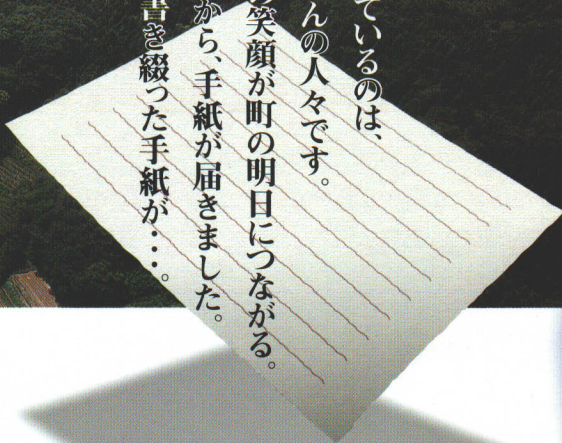 ているのは、
んの人々です。
笑顔が町の明日につながる。
から、手紙が届きました。
書き綴った手紙が・・・。